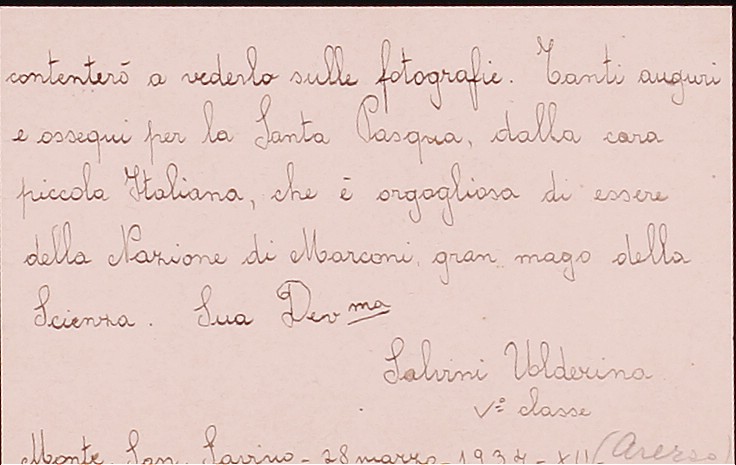 contenterò a vederlo sulle fotografie. Tanti auguri
e ossequi per la Santa Pasqua, dalla cara
piccola Italiana, che è orgogliosa di essere
della Nazione di Marconi, gran mago della
Scienza. Sua Dev ma
Salvini Valderina
Vª classe
Monte San Savino - 28 marzo - 1937 - XII (Arezzo)